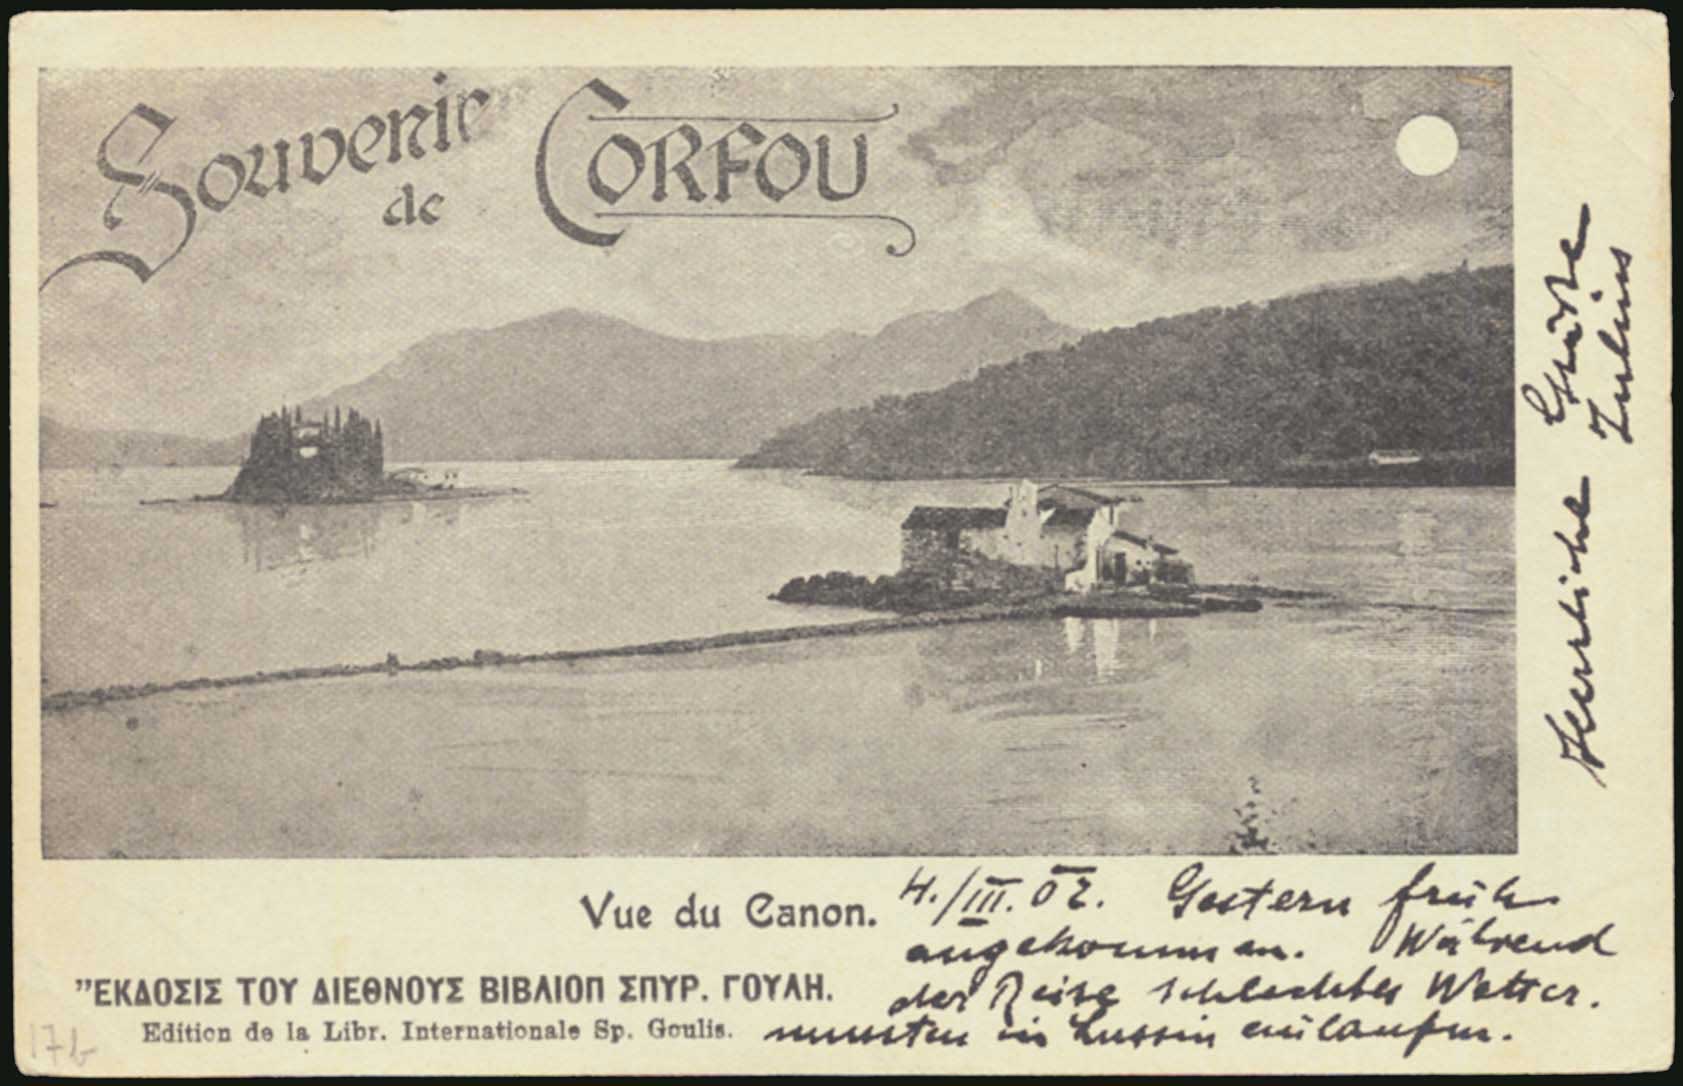 Souvenir
de
CORFOU
Herzliche Grüße
Julius
Vue du Canon.
4./III. 02. Gestern früh
angekommen. Während
der Reise schlechtes Wetter.
mussten in Lussin einlaufen.
"ΕΚΔΟΣΙΣ ΤΟΥ ΔΙΕΘΝΟΥΣ ΒΙΒΛΙΟΠ ΣΠΥΡ. ΓΟΥΛΗ.
Edition de la Libr. Internationale Sp. Goulis.
17b